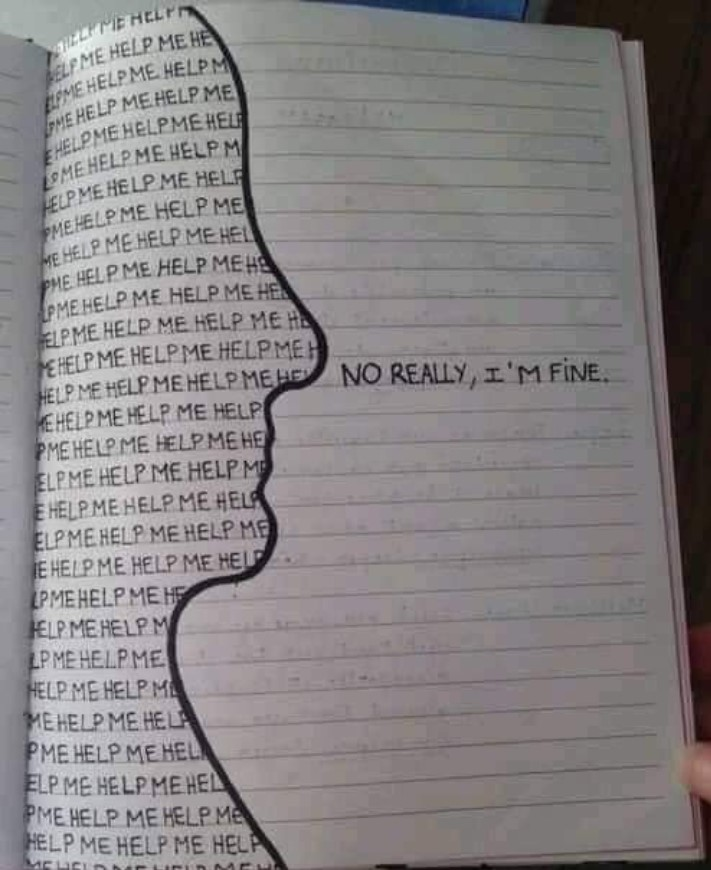 HELP ME HELP M
ELP ME HELP ME HE
LP ME HELP ME HELP M
P ME HELP ME HELP ME
E HELP ME HELP ME HELP
LP ME HELP ME HELP M
HELP ME HELP ME HELP
P ME HELP ME HELP ME
ME HELP ME HELP ME HEL
P ME HELP ME HELP ME HE
LP ME HELP ME HELP ME HEL
ELP ME HELP ME HELP ME HE
ME HELP ME HELP ME HELP ME H
HELP ME HELP ME HELP ME HEL
NO REALLY, I'M FINE.
ME HELP ME HELP ME HELP
P ME HELP ME HELP ME HE
ELP ME HELP ME HELP ME
E HELP ME HELP ME HELP
ELP ME HELP ME HELP ME
E HELP ME HELP ME HELP
LP ME HELP ME HE
HELP ME HELP M
LP ME HELP ME
HELP ME HELP ME
ME HELP ME HELP
P ME HELP ME HEL
ELP ME HELP ME HEL
P ME HELP ME HELP ME
HELP ME HELP ME HELP
ME HELP ME HELP ME H